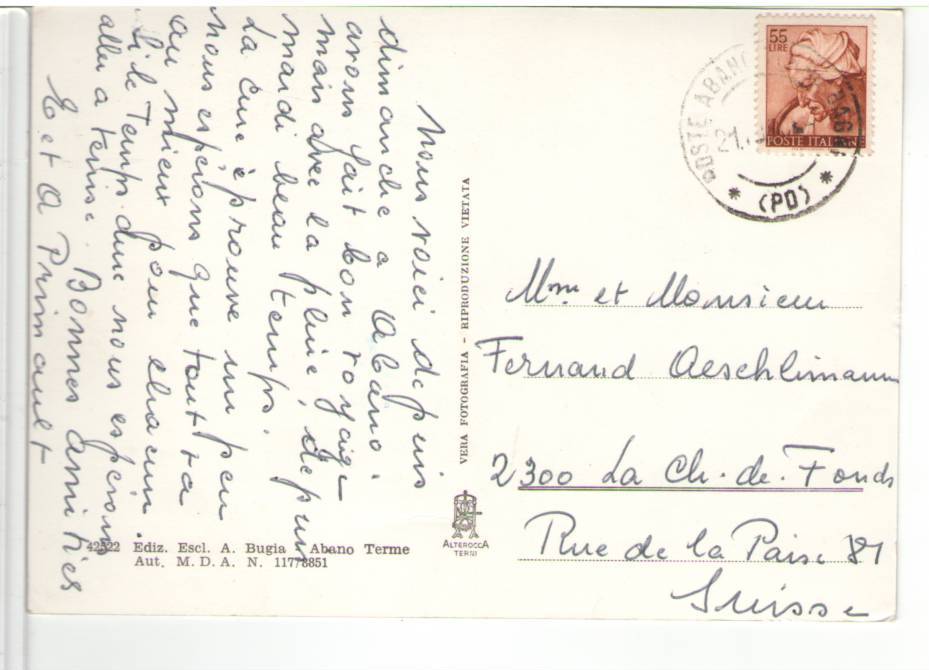 Nous voici depuis
dimanche a Abano.
avons fait bon voyage
mais avec la pluie, depuis
mardi beau temps.
La Cure éprouve un peu
nous espérons que tout va
au mieux pour chacun
si le Temps dure nous espérons
aller a Venise. Bonnes amitiés
E et A Prinault
55
LIRE
POSTE ITALIANE
POSTE ABANO
21.
* (PD) *
VERA FOTOGRAFIA - RIPRODUZIONE VIETATA
Mme et Monsieur
Fernand Aeschlimann
2300 La Ch.-de-Fonds
Rue de la Paix 81
Suisse
ALTEROCCA
TERNI
42522 Ediz. Escl. A. Bugia - Abano Terme
Aut. M. D. A. N. 11778851